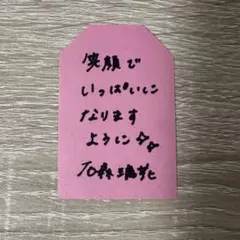 笑顔で
いっぱいに
なります
ように☆☆
石森璃花